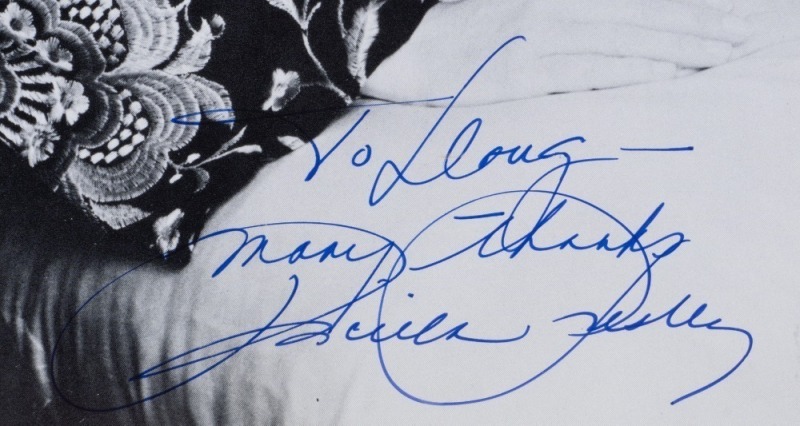 To Doug —
Many Thanks
Priscilla Presley